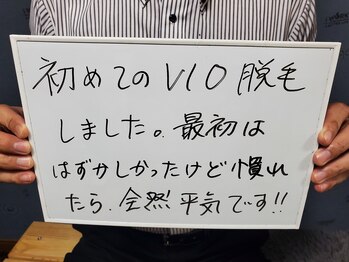 初めてのVIO脱毛
しました。最初は
はずかしかったけど慣れ
たら、全然平気です!!